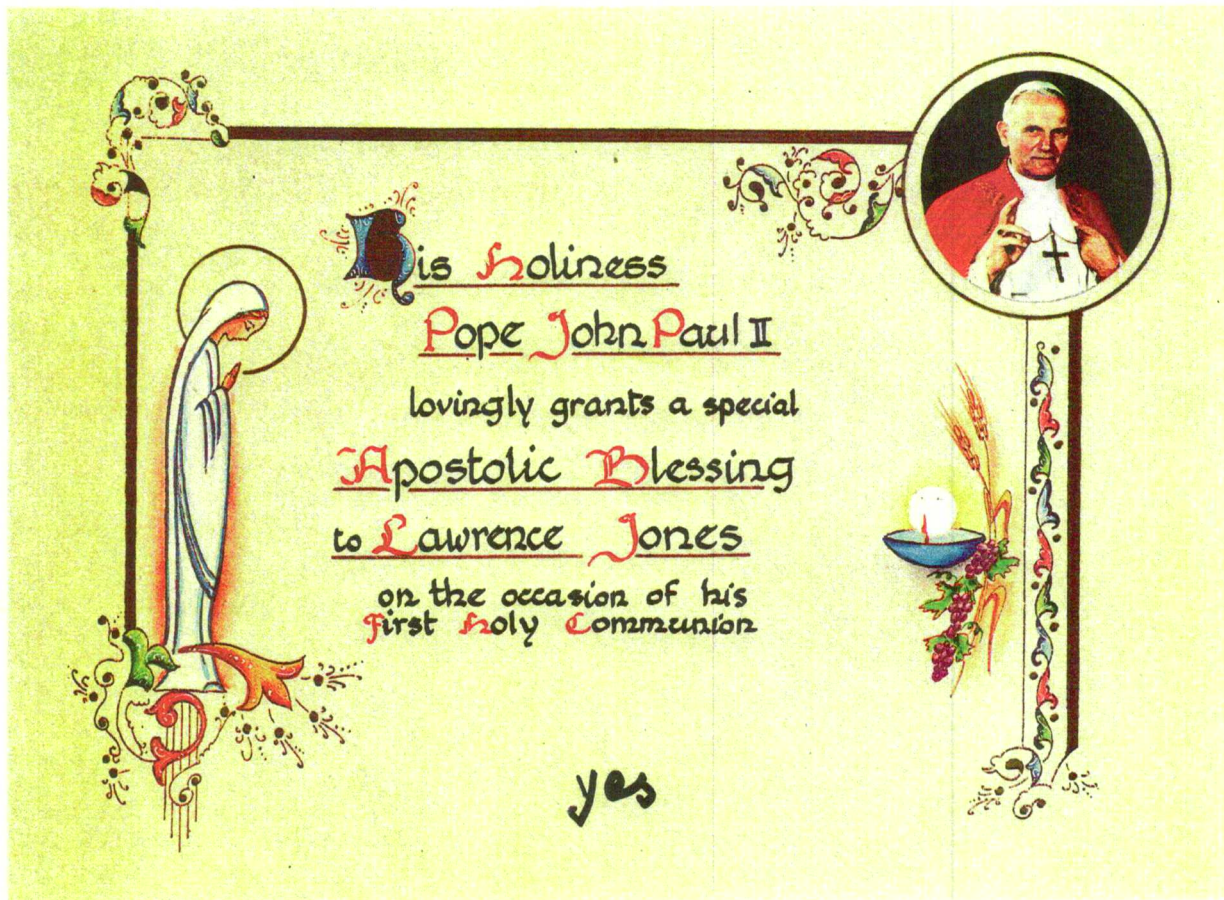 His Holiness
Pope John Paul II
lovingly grants a special
Apostolic Blessing
to Lawrence Jones
on the occasion of his
First Holy Communion
yes